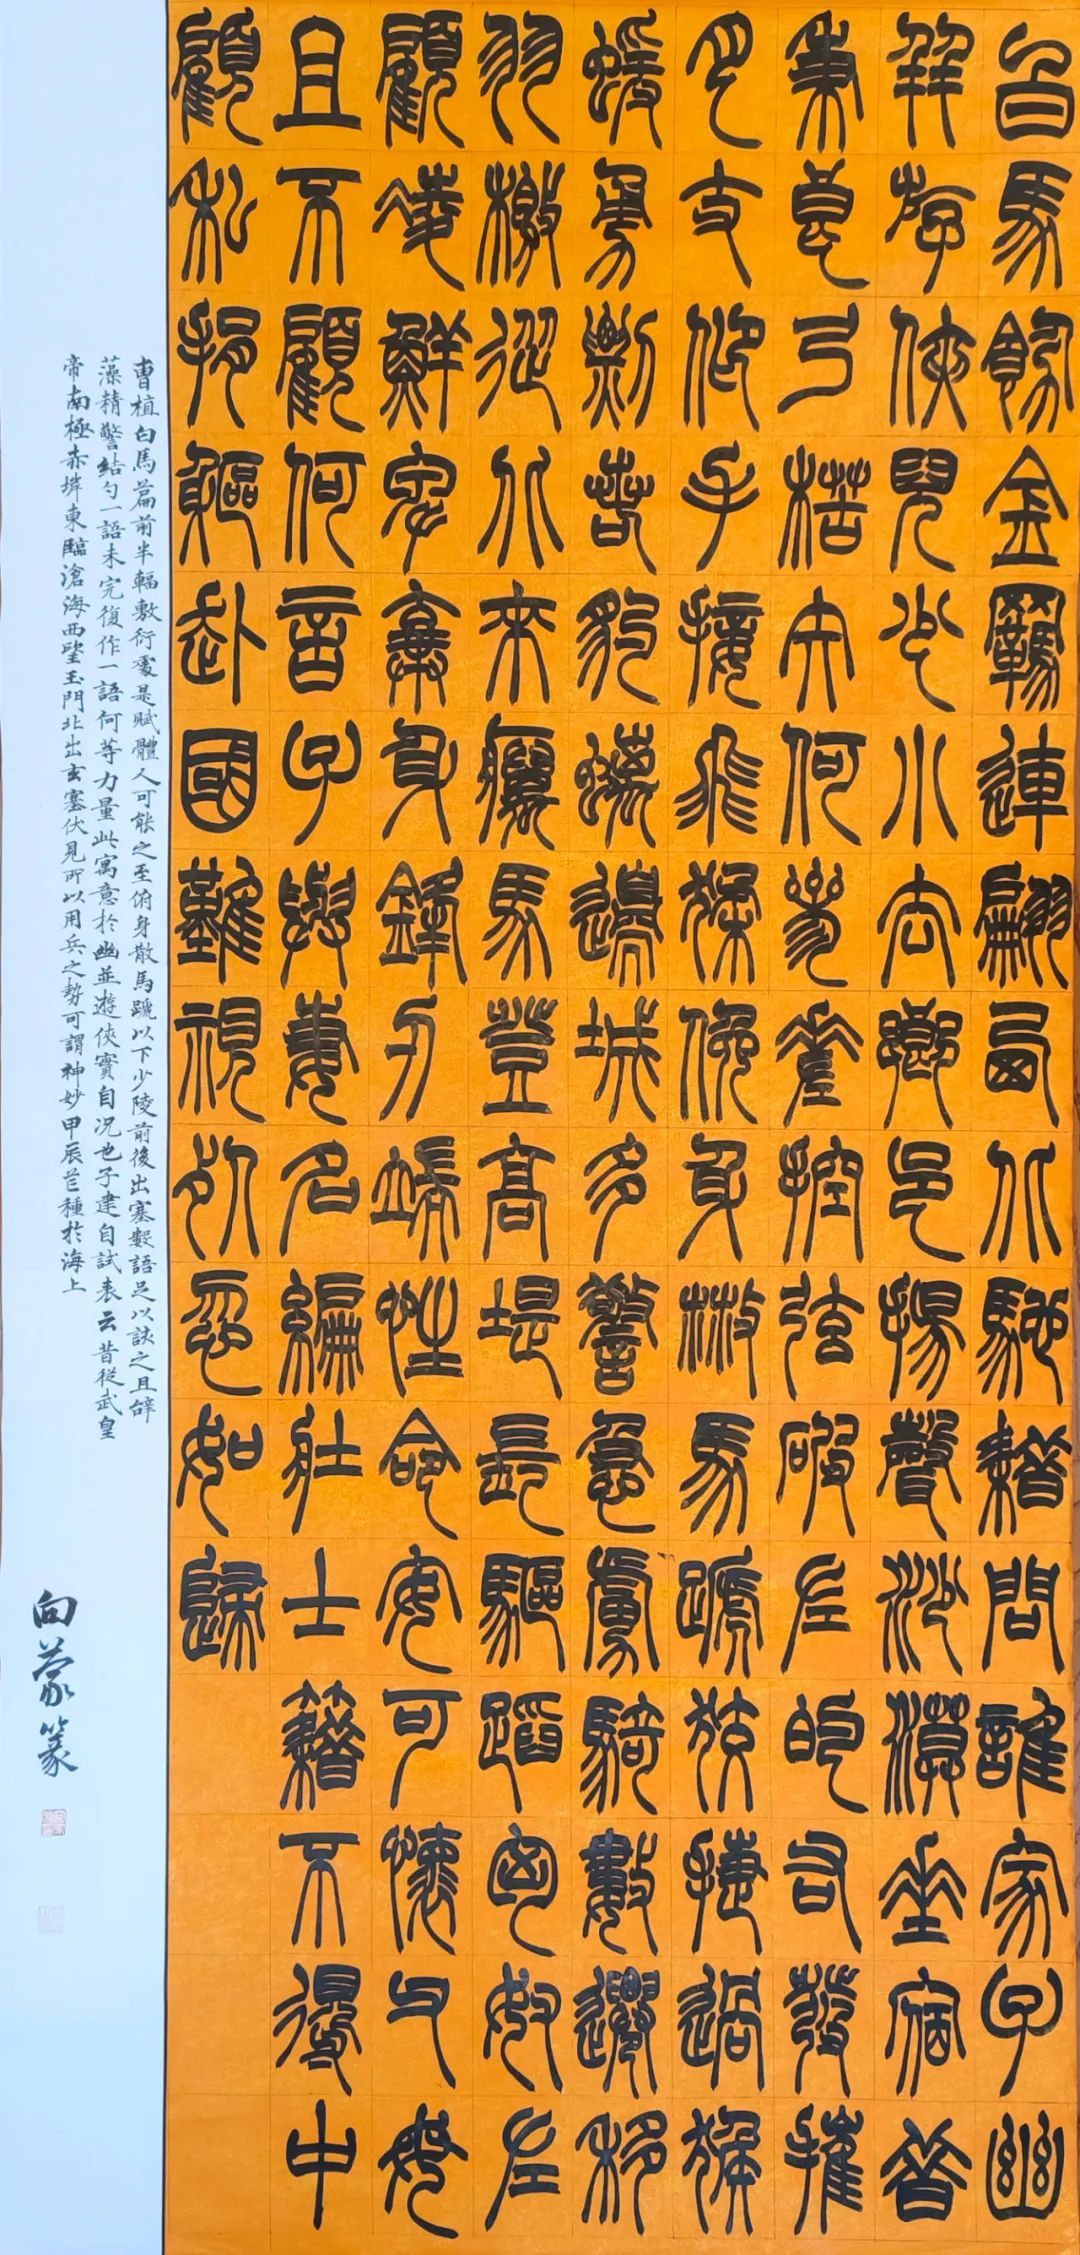 白馬飾金羈連翩西北馳耤問誰家子幽
并游俠兒少小去鄉邑揚聲沙漠垂宿昔
秉良弓楛矢何參差控弦破左的右發摧
月支仰手接飛猱俛身散馬蹏狡捷過猴
蝯勇剽若豹螭邊城多警急虜騎數遷移
羽檄從北來厲馬登高堤長驅蹈匈奴左
顧凌鮮卑棄身鋒刃端性命安可懷父母
且不顧何言子與妻名編壯士籍不得中
顧私捐軀赴國難視死忽如歸
曹植白馬篇前半輻敷衍處是賦體人可能之至俯身散馬蹏以下少陵前後出塞數語足以談之且辭
藻精警結句一語未完復作一語何等力量此寓意於幽並遊俠實自況也子建自試表云昔從武皇
帝南極赤墀東臨滄海西望玉門北出玄塞伏見所以用兵之勢可謂神妙甲辰芒種於海上
向蒙篆